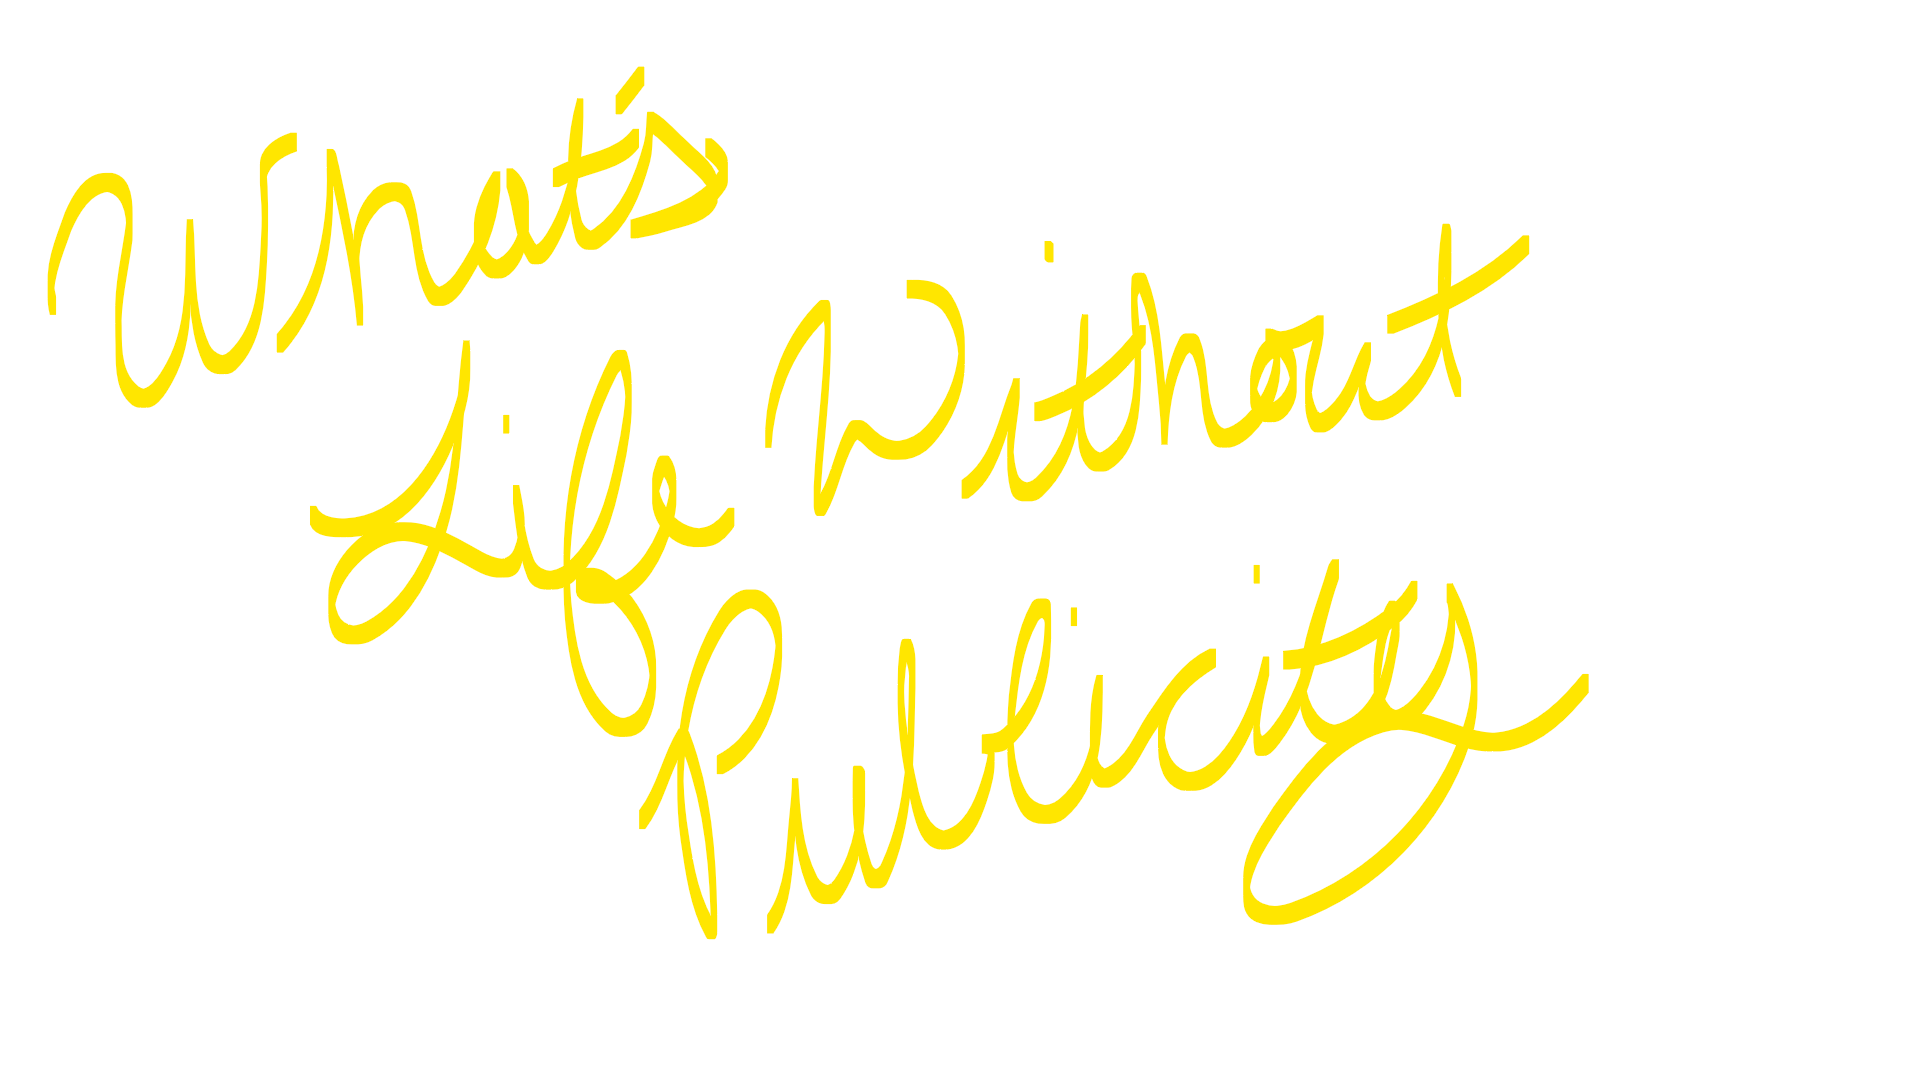 What's
Life Without
Publicity